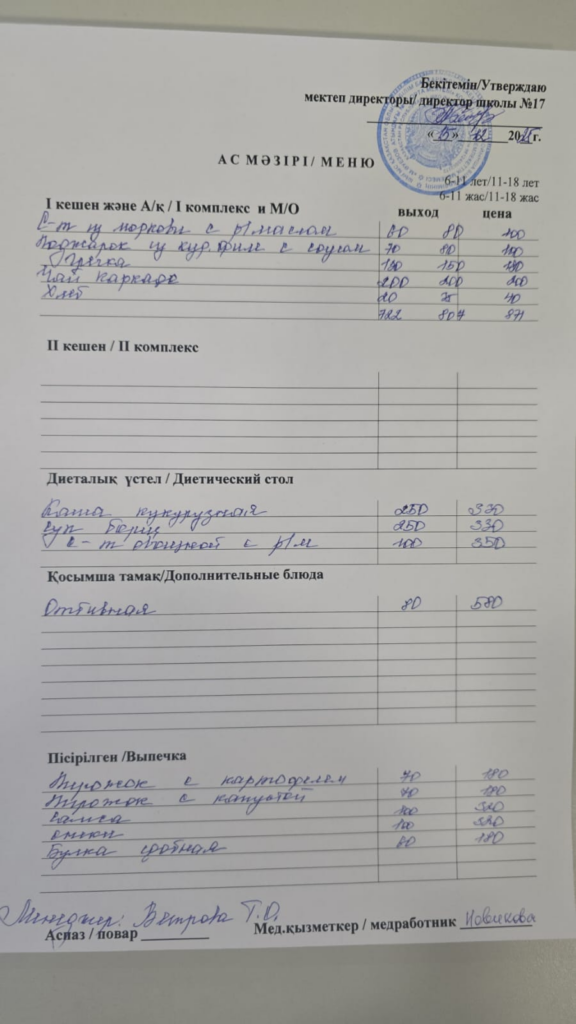 Бекітемін/Утверждаю
мектеп директоры/ директор школы №17
«15» 12 2025г.
АС МӘЗІРІ/ МЕНЮ
6-11 лет/11-18 лет
6-11 жас/11-18 жас
І кешен және А/қ / І комплекс и М/О выход цена
С-т из моркови с р/маслом 60 80 100
Поджарок из кур.филе с соусом 70 80
Гречка 130 150
Чай каркаде 200 200 200
Хлеб 20 40
722 807 871
ІІ кешен / ІІ комплекс
Диеталық үстел / Диетический стол
Каша кукурузная 250 330
Суп борщ 250 330
С-т овощной с р/м 100 350
Қосымша тамақ/Дополнительные блюда
Отбивная 80 580
Пісірілген /Выпечка
Пирожок с картофелем 70 180
Пирожок с капустой 70 180
Самса 100 320
100 320
Булка сдобная 60 180
Менеджер: Ветрова Т.О.
Аспаз / повар Мед.қызметкер / медработник Новикова